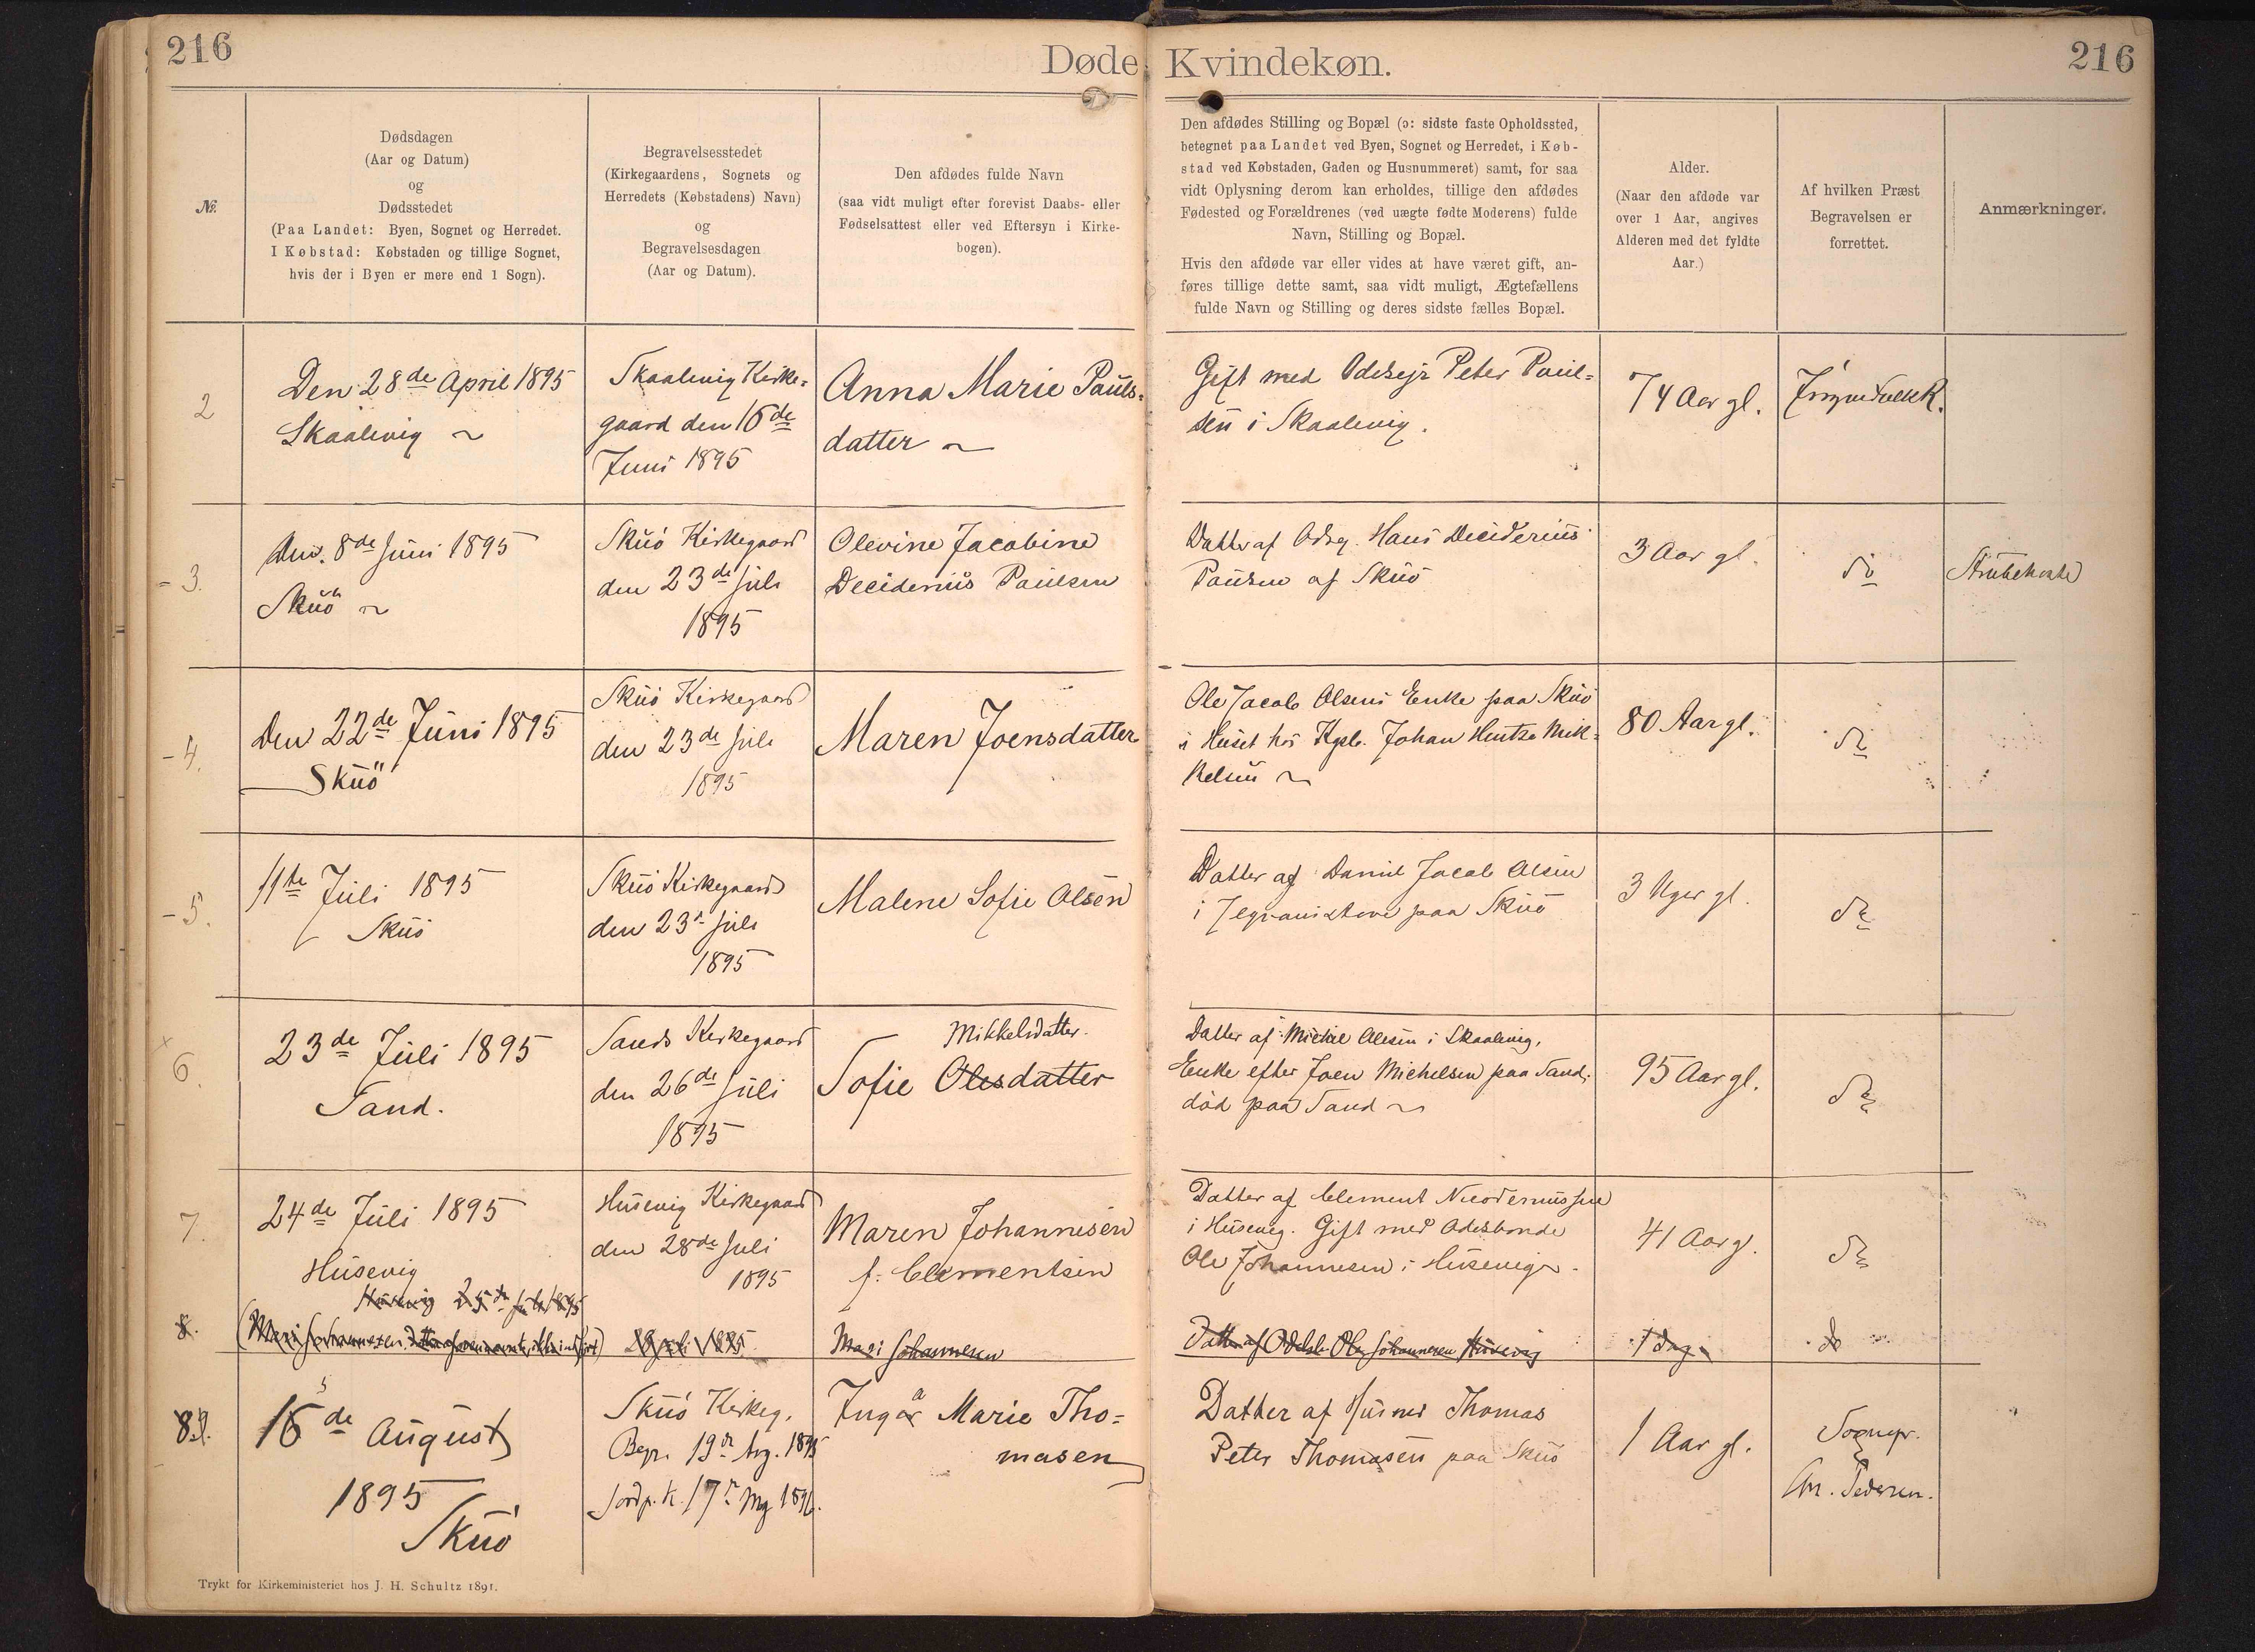 216
Døde Kvindekøn.
216
Nr.
Dødsdagen
(Aar og Datum)
og
Dødsstedet
(Paa Landet: Byen, Sognet og Herredet.
I Købstad: Købstaden og tillige Sognet,
hvis der i Byen er mere end 1 Sogn).
Begravelsesstedet
(Kirkegaardens, Sognets og
Herredets (Købstadens) Navn)
og
Begravelsesdagen
(Aar og Datum).
Den afdødes fulde Navn
(saa vidt muligt efter forevist Daabs- eller
Fødselsattest eller ved Eftersyn i Kirke-
bogen).
Den afdødes Stilling og Bopæl (ɔ: sidste faste Opholdssted,
betegnet paa Landet ved Byen, Sognet og Herredet, i Køb-
stad ved Købstaden, Gaden og Husnummeret) samt, for saa
vidt Oplysning derom kan erholdes, tillige den afdødes
Fødested og Forældrenes (ved uægte fødte Moderens) fulde
Navn, Stilling og Bopæl.
Hvis den afdøde var eller vides at have været gift, an-
føres tillige dette samt, saa vidt muligt, Ægtefællens
fulde Navn og Stilling og deres sidste fælles Bopæl.
Alder.
(Naar den afdøde var
over 1 Aar, angives
Alderen med det fyldte
Aar.)
Af hvilken Præst
Begravelsen er
forrettet.
Anmærkninger.
2
Den 28de April 1895
Skaalevig
Skaalevig Kirke-
gaard den 16de
Juni 1895
Anna Marie Pauls-
datter
Gift med Odelsejr Peter Poul-
sen i Skaalevig.
74 Aar gl.
3.
Den 8de Juni 1895
Skuö
Skuö Kirkegaard
den 23de Juli
1895
Olevine Jacobine
Deciderius Paulsen
Datter af Odsej. Hans Deciderius
Paulsen af Skuö
3 Aar gl.
do
Strubehoste
4.
Den 22de Juni 1895
Skuö
Skuö Kirkegaard
den 23de Juli
1895
Maren Joensdatter
Ole Jacob Olsens Enke paa Skuö
i Huset hos Kgsb. Johan Hentze Mik-
kelsen
80 Aar gl.
do
5.
11te Juli 1895
Skuö
Skuö Kirkegaard
den 23d Juli
1895
Malene Sofie Olsen
Datter af Daniel Jacob Olsen
i paa Skuö
3 Uger gl.
do
6.
23de Juli 1895
Sand.
Sands Kirkegaard
den 26de Juli
1895
Mikkelsdatter.
Sofie Olesdatter
Datter af Michel Olesen i Skaalevig,
Enke efter Joen Michelsen paa Sand,
död paa Sand
95 Aar gl.
do
7.
24de Juli 1895
Husevig
Husevig Kirkegaard
den 28de Juli
1895
Maren Johannesen
f. Clementsen
Datter af Clement Nicodemussen
i Husevig. Gift med Odelsbonde
Ole Johannesen i Husevig.
41 Aar gl.
do
8.
Husevig 25de Juli 1895
(Mari Johannesen,
28 Juli 1895
Mari Johannesen
Datter af Odelsb. Ole Johannesen Husevig
1 dag
do
8
15de August
1895
Skuö
Skuö Kirkeg.
Begr. 19de Aug. 1895
Jordp. k. 17
Inga Marie Tho-
masen
Datter af Husmd Thomas
Peter Thomasen paa Skuö
1 Aar gl.
Sognepr.
Pedersen.
Trykt for Kirkeministeriet hos J. H. Schultz 1891.